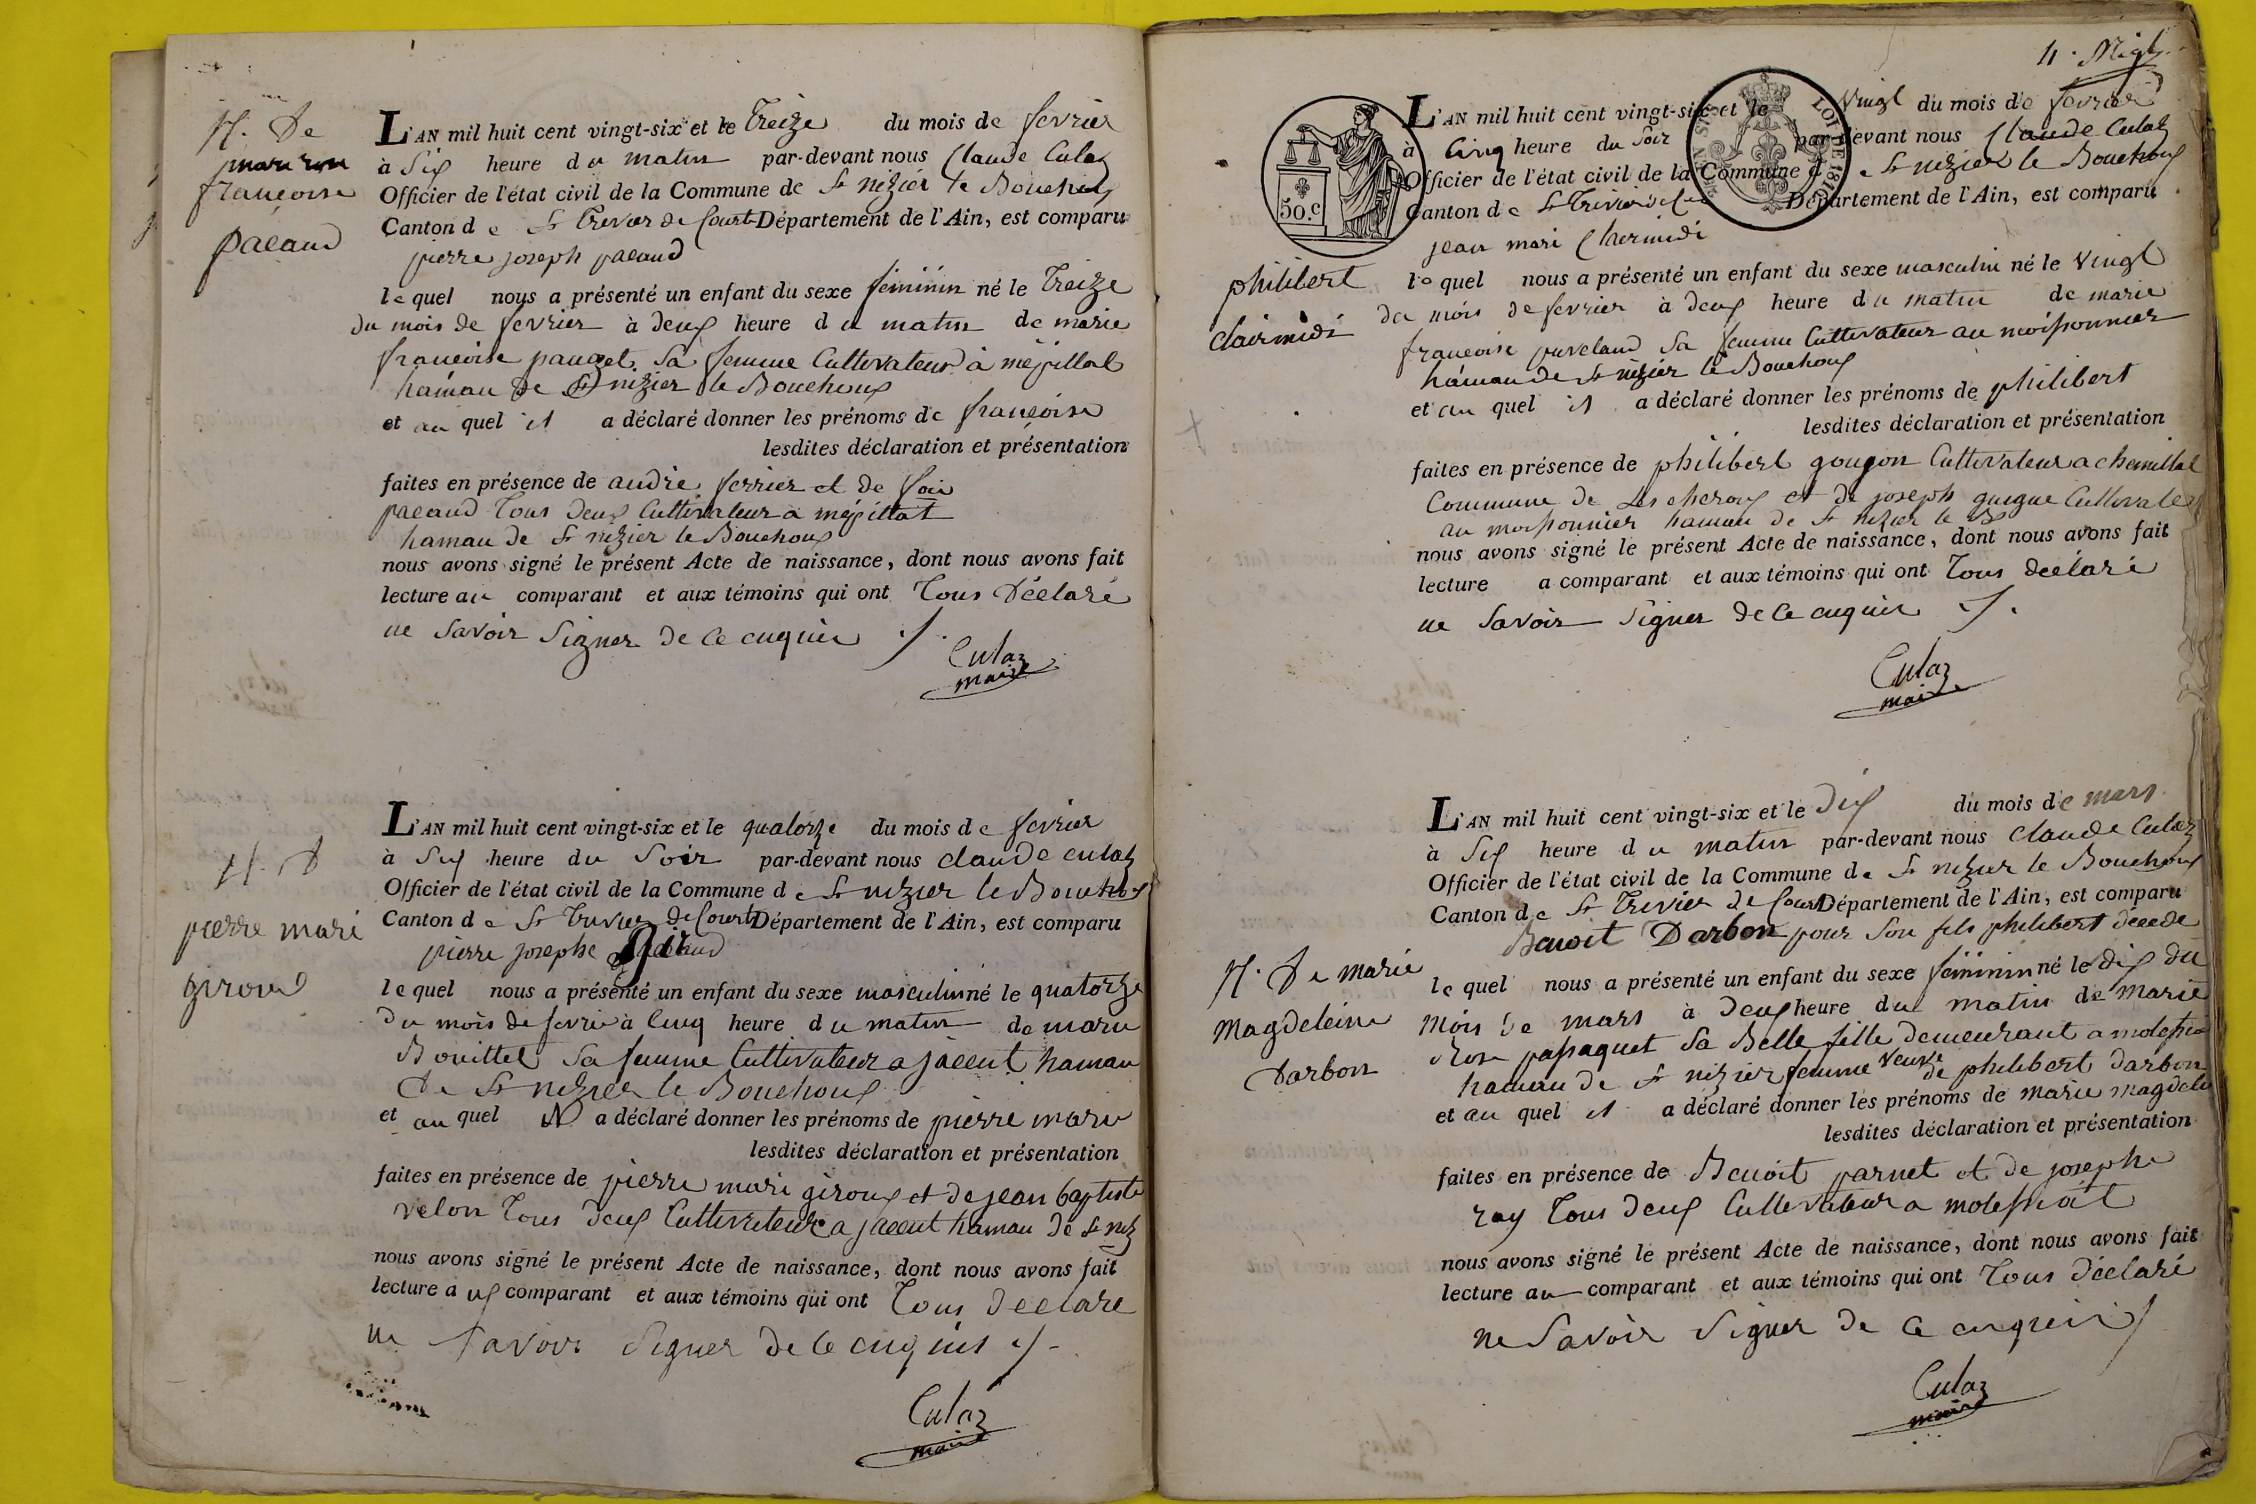 N. De
françoise
pacaud
L'AN mil huit cent vingt-six et le Treize du mois de fevrier
à Six heure du matin par-devant nous Claude Culaz
Officier de l'état civil de la Commune de St nizier le Bouchoux
Canton de St Trivier de Courtes Département de l'Ain, est comparu
pierre joseph pacaud
lequel nous a présenté un enfant du sexe féminin né le Treize
du mois de fevrier à deux heure du matin de marie
françoise pauget sa femme Cultivateur à mépillat
hamau de St nizier le Bouchoux
et au quel il a déclaré donner les prénoms de françoise
lesdites déclaration et présentation
faites en présence de andré ferrier et de
pacaud Tous deux Cultivateur a mépillat
hamau de St nizier le Bouchoux
nous avons signé le présent Acte de naissance, dont nous avons fait
lecture au comparant et aux témoins qui ont Tous Déclaré
ne Savoir Signer de ce enquis
Culaz
maire
N. D
pierre mari
giroud
L'AN mil huit cent vingt-six et le quatorze du mois de fevrier
à Six heure du Soir par-devant nous claude culaz
Officier de l'état civil de la Commune de St nizier le Bouchoux
Canton de St Trivier de Courtes Département de l'Ain, est comparu
pierre josephe
lequel nous a présenté un enfant du sexe masculin né le quatorze
Du mois de fevrie à Cinq heure du matin de marie
Bouillet Sa femme Cultivateur a jacent hamau
De St nizier le Bouchoux
et au quel il a déclaré donner les prénoms de pierre marie
lesdites déclaration et présentation
faites en présence de pierre mari giroux et de jean baptiste
velon Tous deux Cultivateur a jacent hamau de St niz
nous avons signé le présent Acte de naissance, dont nous avons fait
lecture aux comparant et aux témoins qui ont Tous declaré
ne Savoir Signer de ce enquis
Culaz
maire
4.
50.c
LOI DE 1816
L'AN mil huit cent vingt-six et le vingt du mois de fevrier
à Cinq heure du Soir par-devant nous Claude Culaz
Officier de l'état civil de la Commune de St nizier le Bouchoux
Canton de St Trivier de Département de l'Ain, est comparu
jean mari Clairmidi
philibert
clairmidi
lequel nous a présenté un enfant du sexe masculin né le vingt
du mois de fevrier à deux heure du matin de marie
françoise puveland Sa femme Cultivateur au moissonnier
hámau de St nizier le Bouchoux
et au quel il a déclaré donner les prénoms de philibert
lesdites déclaration et présentation
faites en présence de philibert gougon Cultivateur a chemillat
Commune de Lescheroux et de joseph guigue Cultivateur
au moissonnier hamau de St nizier le B
nous avons signé le présent Acte de naissance, dont nous avons fait
lecture a comparant et aux témoins qui ont Tous déclaré
ne Savoir Signer de ce enquis
Culaz
maire
N. De marie
magdeleine
Darbon
L'AN mil huit cent vingt-six et le Dix du mois de mars
à Six heure du matin par-devant nous Claude Culaz
Officier de l'état civil de la Commune de St nizier le Bouchoux
Canton de St Trivier de Courtes Département de l'Ain, est comparu
Benoit Darbon pour Son fils philibert décédé
lequel nous a présenté un enfant du sexe féminin né le dix du
Mois de mars à Deux heure du matin de Marie
Rose passaquet Sa Belle fille demeurant a
hameau de St nizier femme veuve de philibert darbon
et au quel il a déclaré donner les prénoms de marie magdele
lesdites déclaration et présentation
faites en présence de Benoit parnet et de josephe
ray Tous deux Cultivateur a molessiat
nous avons signé le présent Acte de naissance, dont nous avons fait
lecture au comparant et aux témoins qui ont Tous déclaré
ne Savoir Signer de ce enquis
Culaz
maire